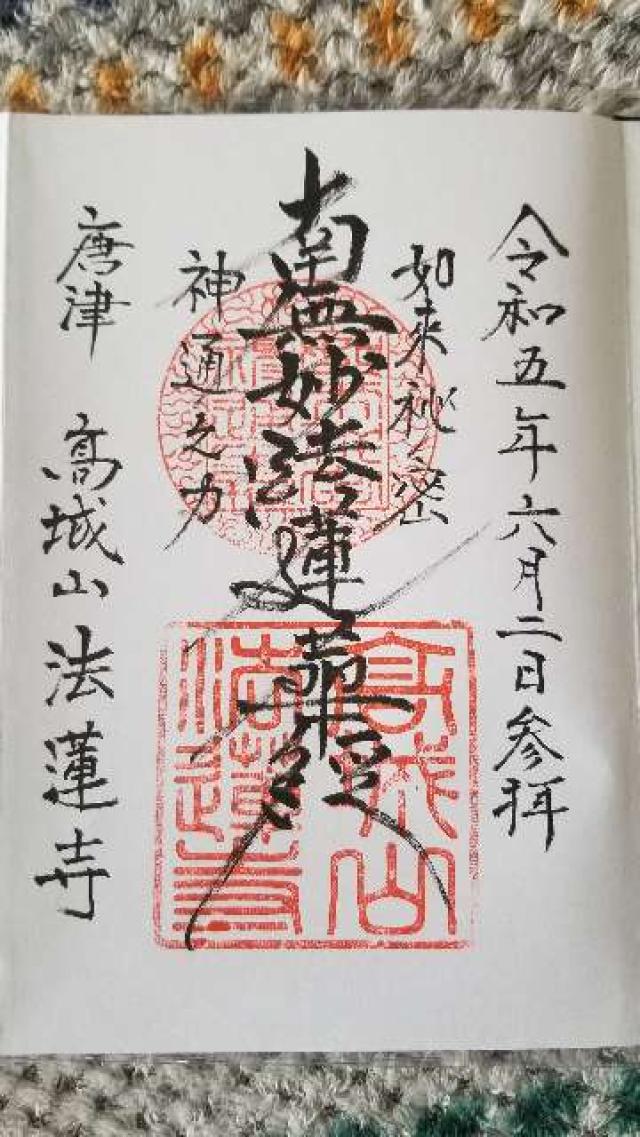 令和五年六月二日参拝
如来秘密
南無妙法蓮華経
神通之力
唐津 高城山 法蓮寺
高城山
法蓮寺